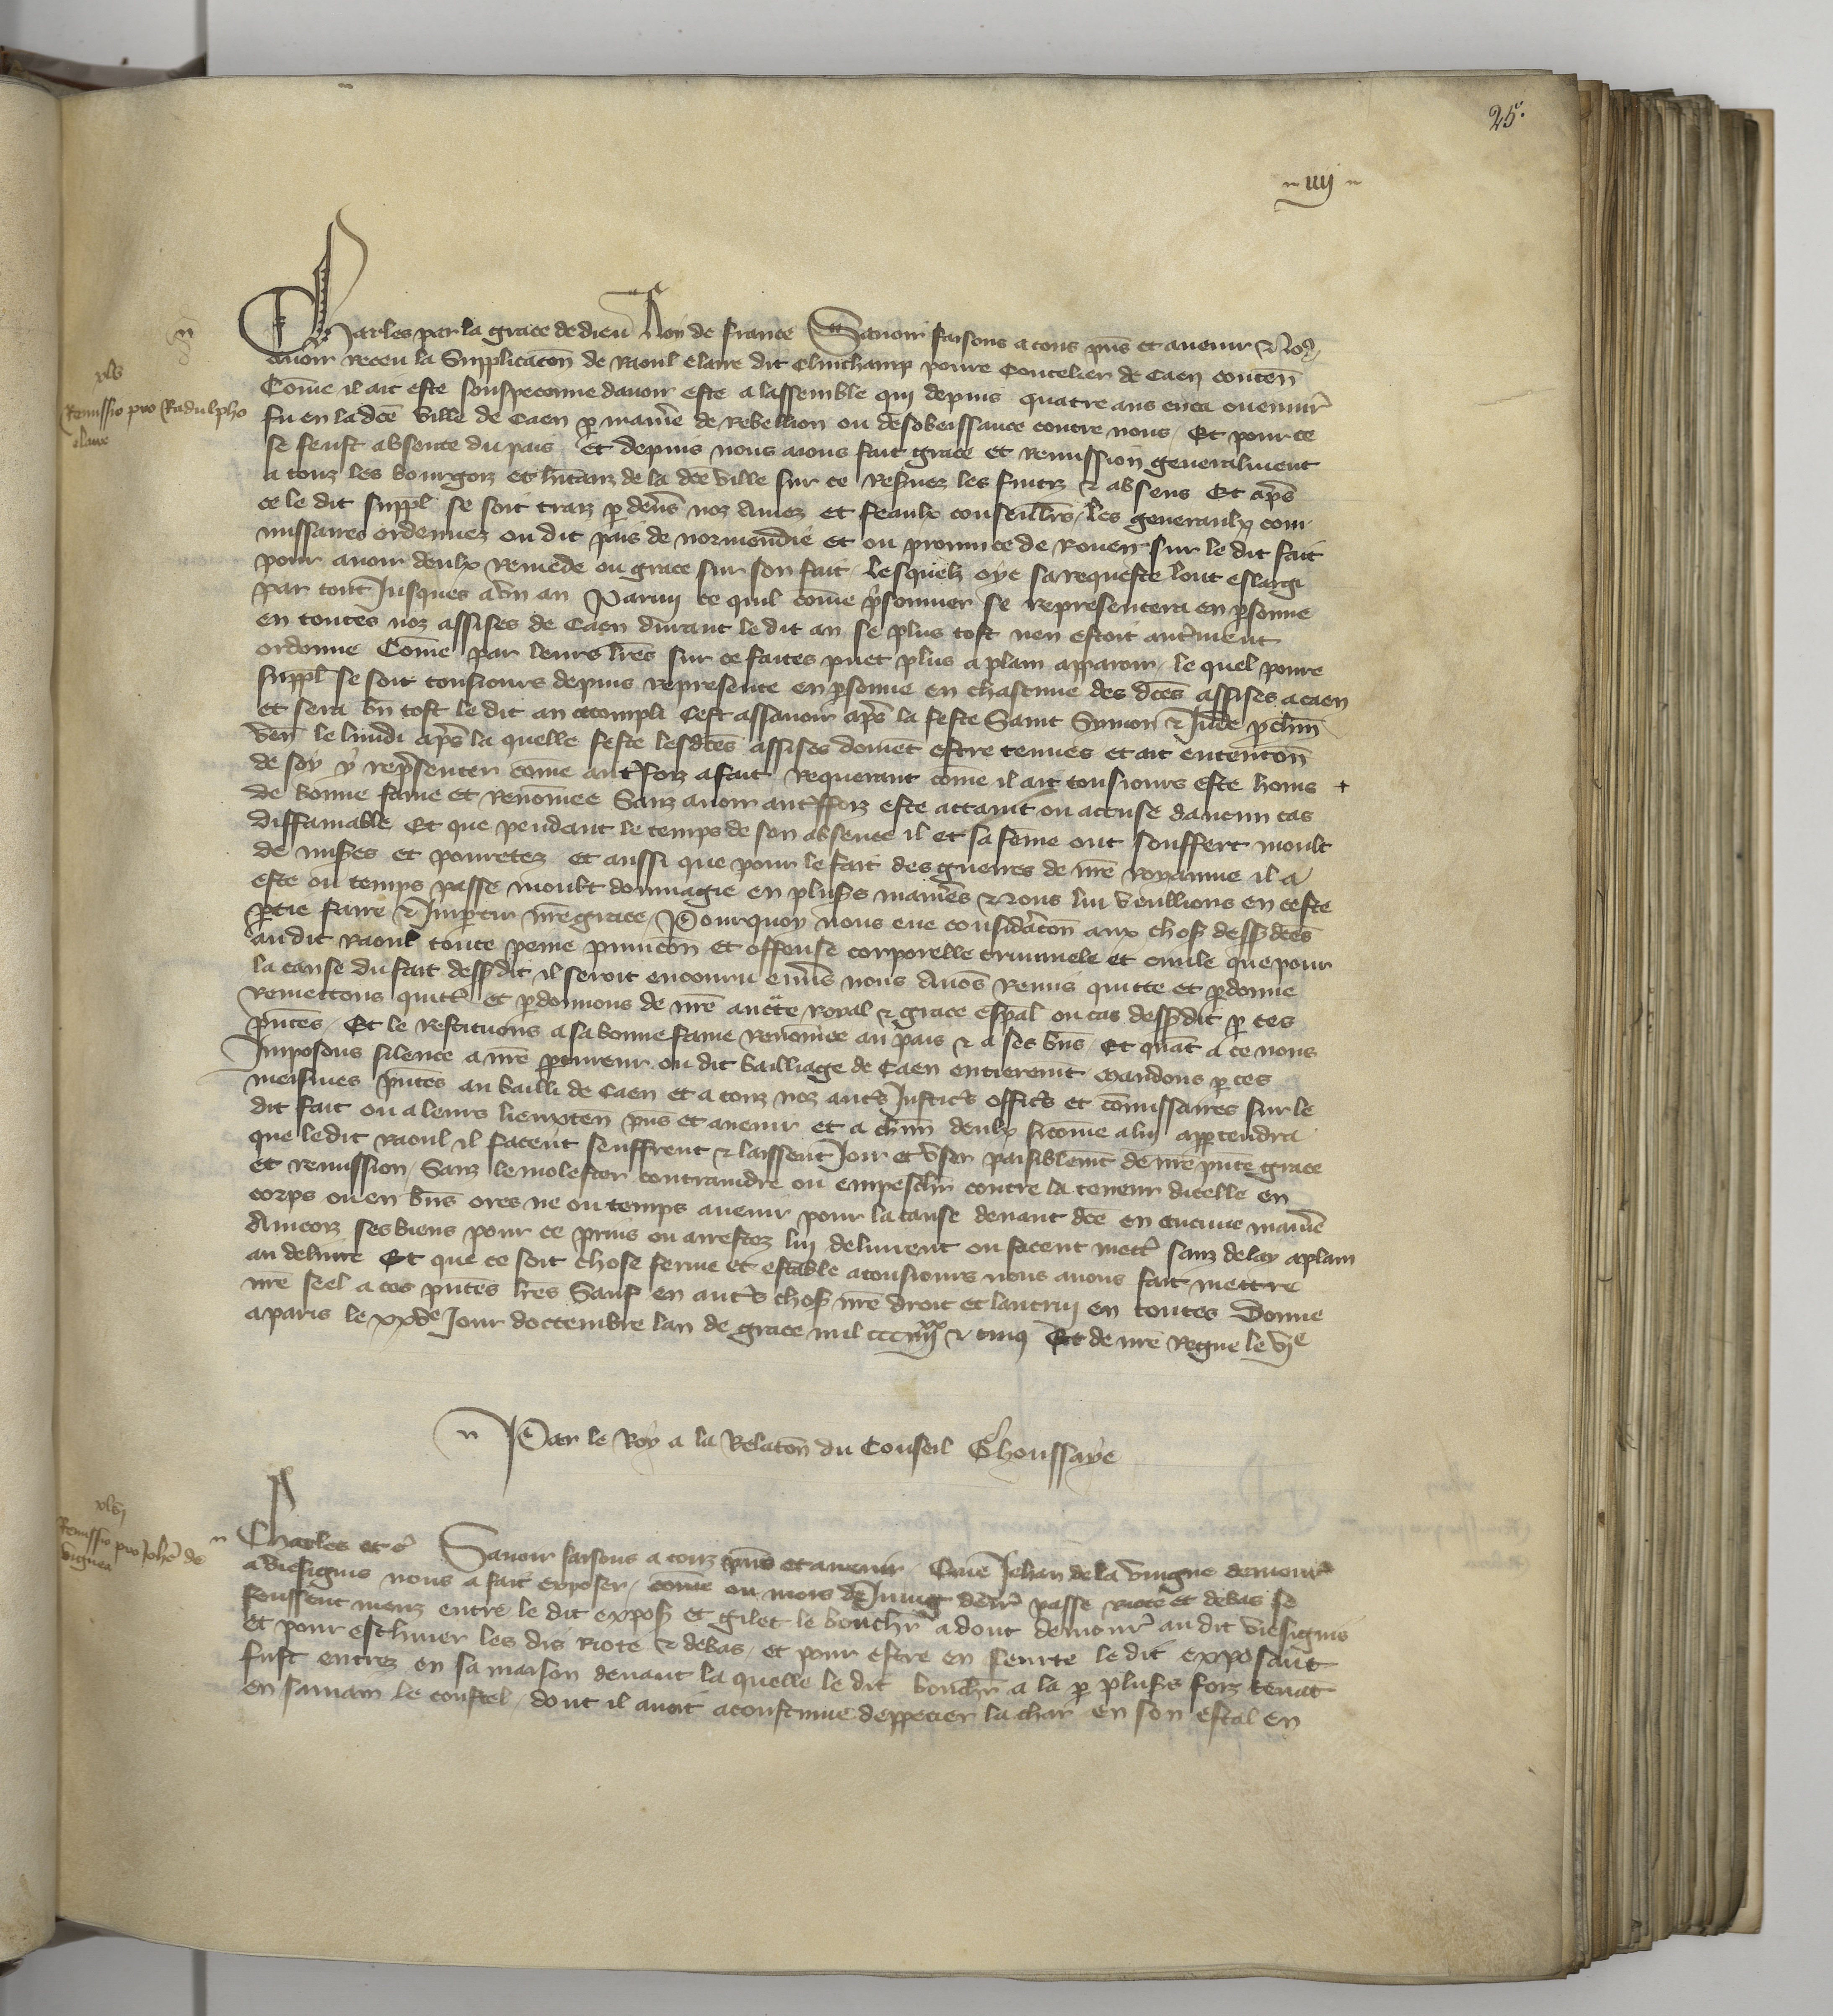 25.
IIIJ
Charles par la grace de dieu Roy de france Savoir faisons a tous pns et avenir Nos
avoir receu la Supplicacon de Raoul clare dit Clinchamp povre Coutelier de Caen conten
Come il ait este souspeconne davoir este a lassemble qui depuis quatre ans enca ou environ
fu en la dce ville de Caen p maniere de Rebellion ou desobeissance contre nous Et pour ce
se feust absente du pais Et depuis nous aions fait grace et remission generalment
a touz les bourgois et hitanz de la dce ville sur ce Resvez les fuitiz & absens Et apres
ce le dit suppl se soit traiz p devs noz Amez et feaulx conseillrs les generaulx com
missaires ordenez ou dit pais de normendie et ou province de Rouen sur le dit fait
pour avoir deulx remede ou grace sur son fait lesquelz oye sa requeste lont eslargi
par tout Jusques a un an Parmi ce quil come prisonnier se representera en psonne
en toutes noz assises de Caen durant le dit an se plus tost nen estoit autrement
ordonne Come par leurs lres sur ce faites puet plus a plain apparoir le quel povre
suppl se soit tousiours depuis represente en psonne en chascune des dces assises a caen
et sera bn tost le dit an acompli Cest assavoir apres la feste Saint Symon & Jude pchain
ven le lundi apres la quelle feste lesdces assises doivent estre tenues et ait entencon
de soy y representer come autrefoiz a fait Requerant come il ait tousiours este homs +
de bonne fame et Renomee Sanz avoir autreffoiz este attaint ou accuse daucun cas
diffamable Et que pendant le temps de son absence il et sa feme ont souffert moult
de mises et povretez et aussi que pour le fait des guerres de nre royaume il a
este ou temps passe moult dommagie en plusrs manieres Nous lui vueillions en ceste
ptie faire & Impartir nre grace Pourquoy nous eue consideracon aux choses dessdces
au dit Raoul toute peine punicon et offense corporelle criminele et civile que pour
la cause du fait dessdit il seroit encouru envers nous Avons Remis quitte et pdonne
Remettons quittons et pdonnons de nre auctte royal & grace espal ou cas dessdit p ces
pntes Et le Restituons a sa bonne fame Renomee au pais & a ses bns Et quant a ce nous
Imposons silence a nre procureur ou dit bailliage de Caen entierement Mandons p ces
meismes pntes au bailli de Caen et a touz noz autres Justiciers officiers et comissaires sur le
dit fait ou a leurs lieuxten pns et avenir et a chun deulx sicome a lui appartendra
que le dit Raoul il facent seuffrent & laissent Joir et user paisiblemt de nre pnte grace
et remission Sanz le molester contraindre ou empescher contre la teneur dicelle en
corps ou en bns ores ne ou temps avenir pour la cause devant dce en aucune maniere
Aincois ses biens pour ce prins ou arrestez lui delivrent ou facent mettre sanz delay a plain
au delivre Et que ce soit chose ferme et estable a tousiours nous avons fait mettre
nre seel a ces pntes lres Sauf en autres choses nre droit et lautruy en toutes Donne
a paris le xxe Jour doctembre lan de grace mil ccc iiiixx & cinq Et de nre Regne le vie
Par le Roy a la Relacon du Conseil G houssaye
xlv
Remissio pro Radulpho
clare
Charles etc Savoir faisons a touz pns et avenir Come Jehan de la vingne demourant
a viesignis nous a fait exposer come ou mois de Juing derrenier passe riote et debas se
feussent meuz entre le dit exposant et gilet le bouchier adont demourant au dit viesignis
et pour eschiver les dis riote & debas et pour estre en seurte le dit exposant
fust entrez en sa maison devant la quelle le dit bouchier a la p plusrs foiz tenant
en sa main le coustel dont il avoit acoustume deppecier la char en son estal en
xlvj
Remissio pro Johe de
vignea